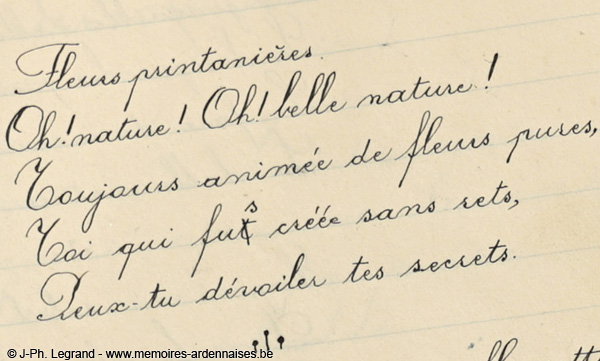 Fleurs printanières.
Oh! nature! Oh! belle nature!
Toujours animée de fleurs pures,
Toi qui futs créée sans rets,
Peux-tu dévoiler tes secrets.
© J-Ph. Legrand - www.memoires-ardennaises.be